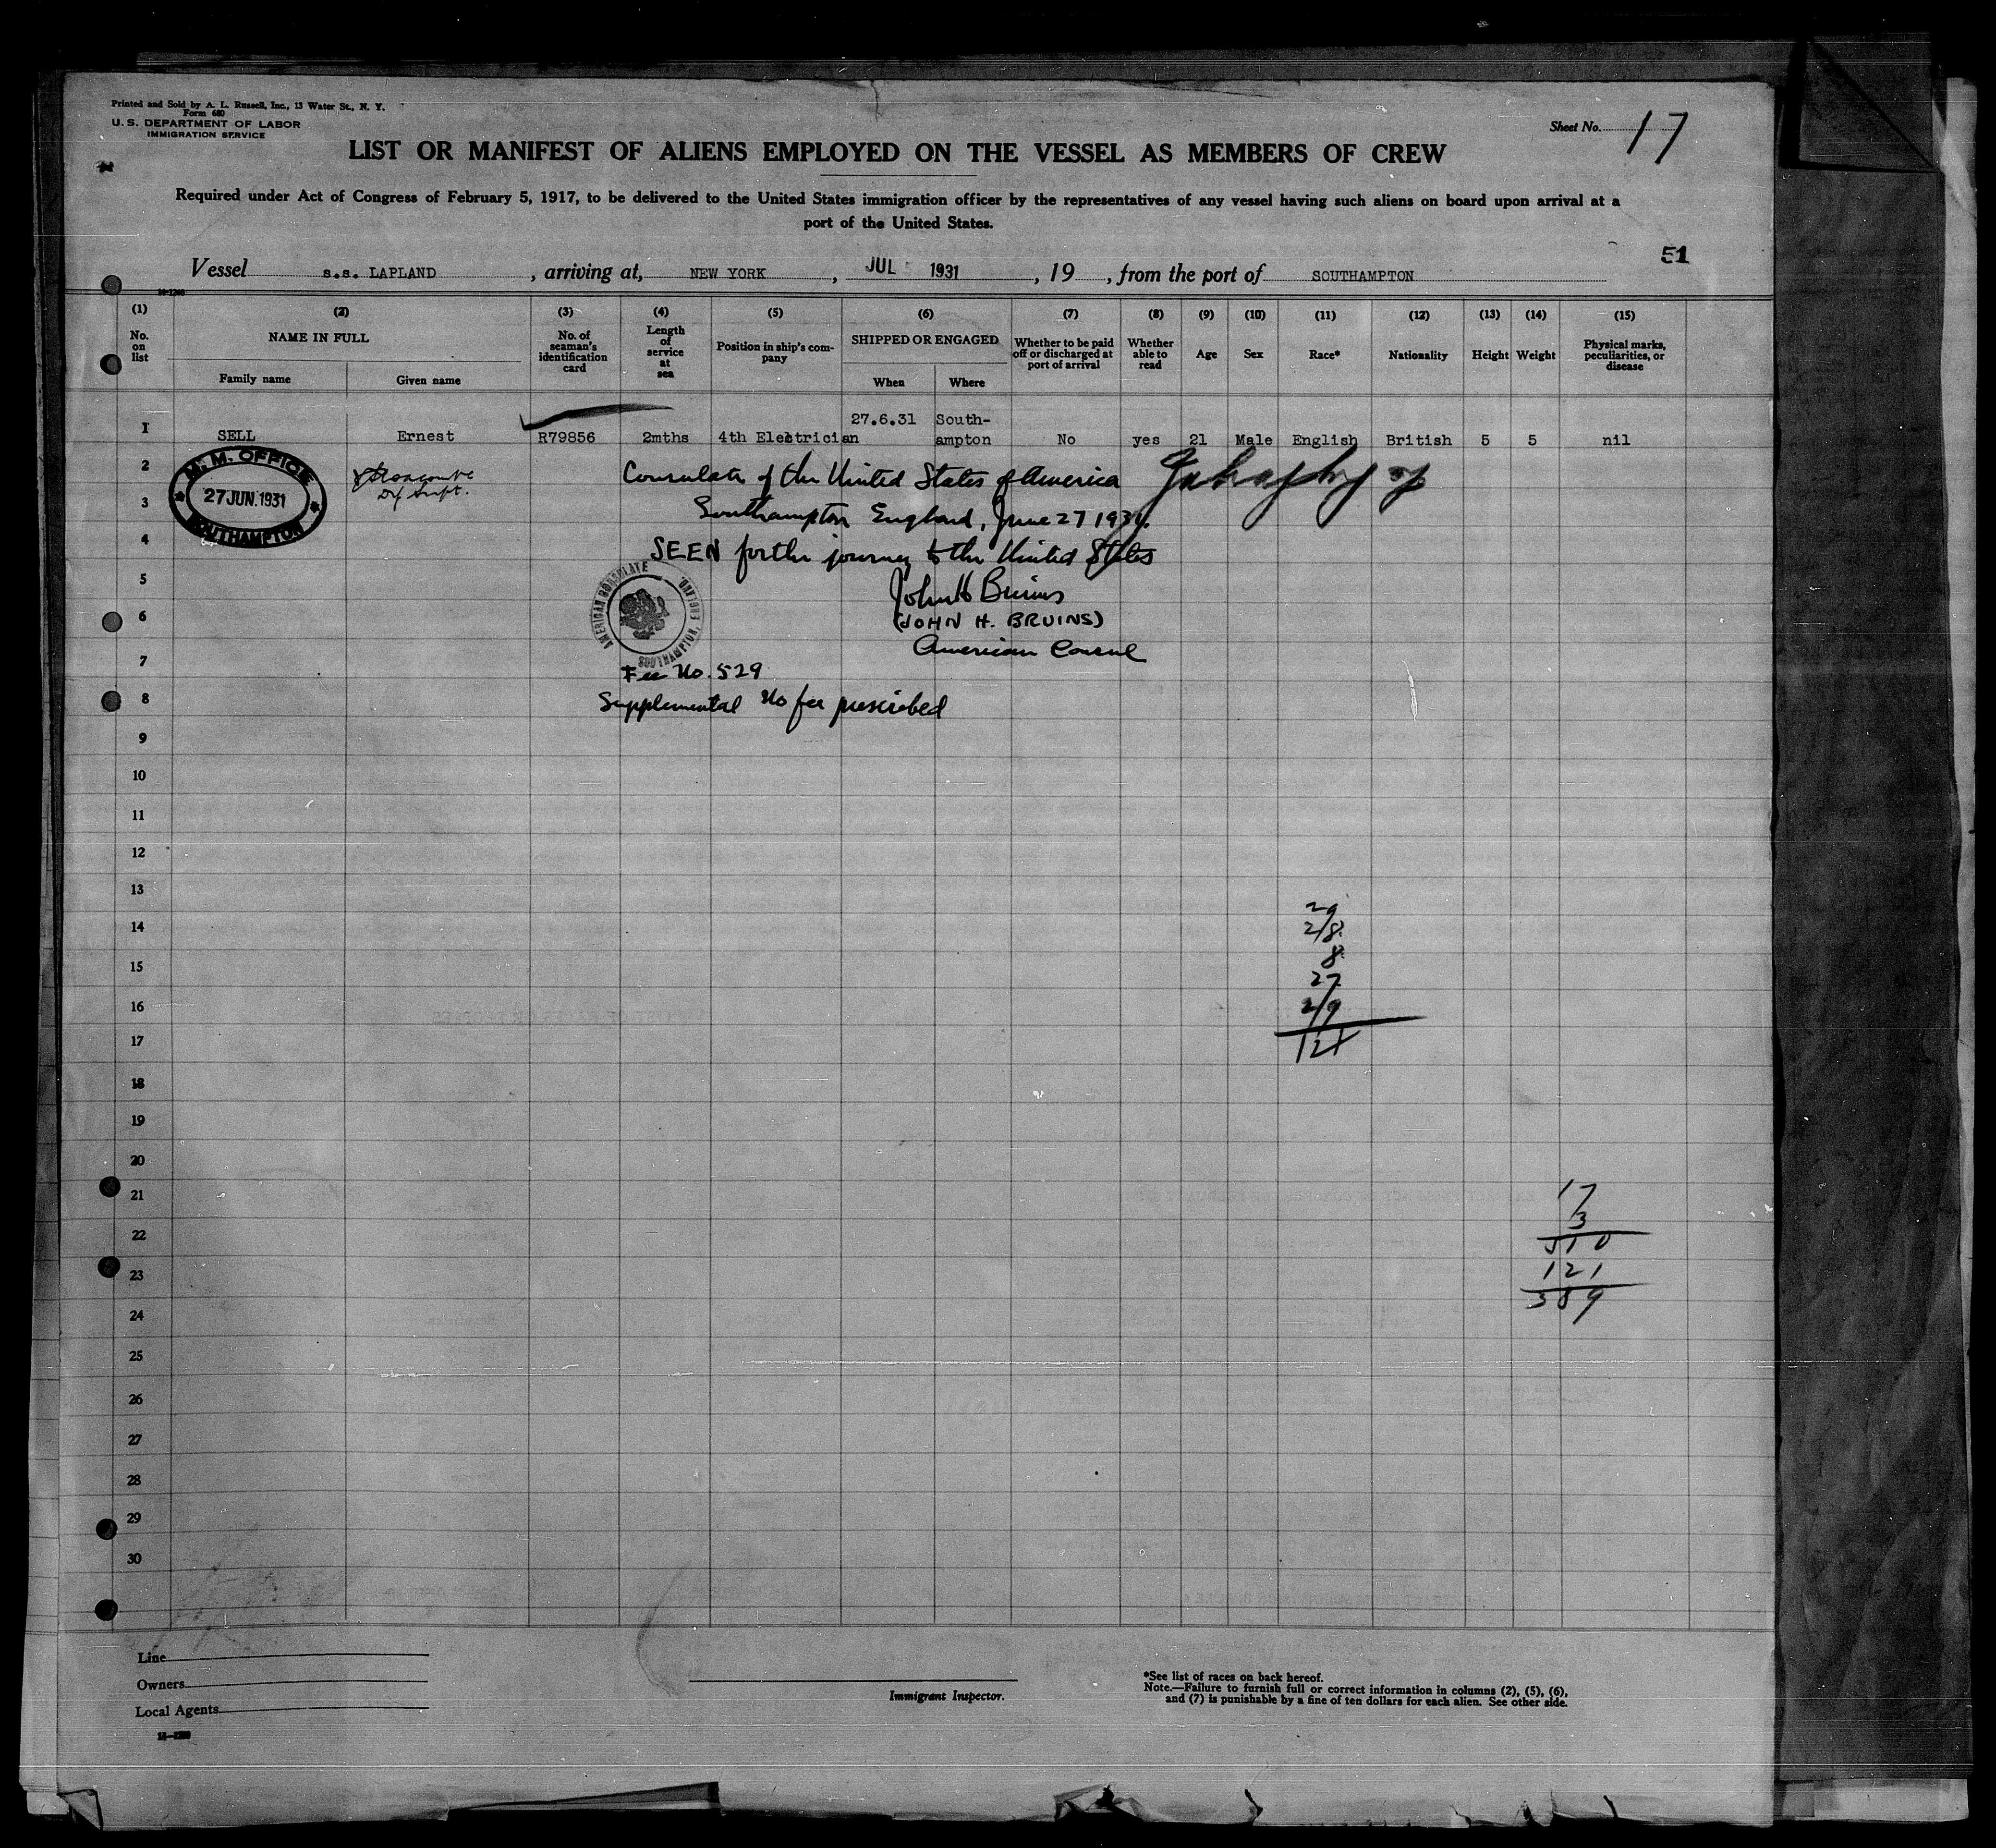 Printed and Sold by A. L. Russell, Inc., 13 Water St., N. Y.
Form 680
U. S. DEPARTMENT OF LABOR
IMMIGRATION SERVICE
Sheet No. 17
LIST OR MANIFEST OF ALIENS EMPLOYED ON THE VESSEL AS MEMBERS OF CREW
Required under Act of Congress of February 5, 1917, to be delivered to the United States immigration officer by the representatives of any vessel having such aliens on board upon arrival at a
port of the United States.
51
Vessel s.s. LAPLAND, arriving at, NEW YORK, JUL 1931, 19, from the port of SOUTHAMPTON
(1) (2) (3) (4) (5) (6) (7) (8) (9) (10) (11) (12) (13) (14) (15)
No. on list
NAME IN FULL
Family name
Given name
No. of seaman's identification card
Length of service at sea
Position in ship's company
SHIPPED OR ENGAGED
When
Where
Whether to be paid off or discharged at port of arrival
Whether able to read
Age
Sex
Race*
Nationality
Height
Weight
Physical marks, peculiarities, or disease
1 SELL Ernest R79856 2mths 4th Electrician 27.6.31 South-ampton No yes 21 Male English British 5 5 nil
M. M. OFFICE
27 JUN. 1931
SOUTHAMPTON
Consulate of the United States of America
Southampton England, June 27 1931.
SEEN for the journey to the United States
John H Bruins
(JOHN H. BRUINS)
American Consul
AMERICAN CONSULATE
SOUTHAMPTON, ENGLAND.
Fee No. 529
Supplemental No fee prescribed
2
3
4
5
6
7
8
9
10
11
12
13
14
15
16
17
18
19
20
21
22
23
24
25
26
27
28
29
30
29
2/8
8
27
2/9
121
17
3
510
121
389
Line
Owners
Local Agents
Immigrant Inspector.
*See list of races on back hereof.
Note.—Failure to furnish full or correct information in columns (2), (5), (6),
and (7) is punishable by a fine of ten dollars for each alien. See other side.